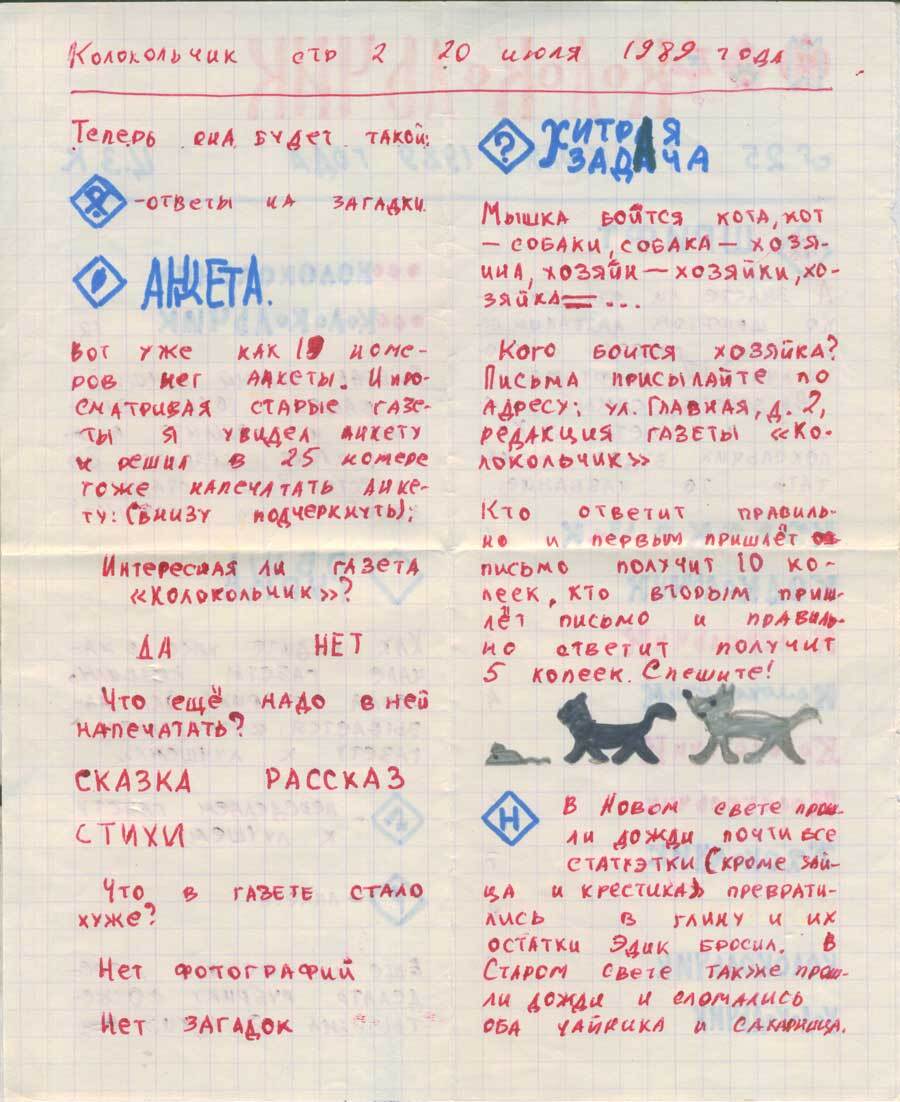 Колокольчик стр 2 20 июля 1989 года
Теперь она будет такой:
-ответы на загадки.
АНКЕТА.
Вот уже как 19 номе-
ров нет анкеты. И про-
сматривая старые газе-
ты я увидел анкету
и решил в 25 номере
тоже напечатать анке-
ту: (внизу подчеркнуть);
Интересная ли газета
«Колокольчик»?
ДА НЕТ
Что ещё надо в ней
напечатать?
СКАЗКА РАССКАЗ
СТИХИ
Что в газете стало
хуже?
Нет фотографий
Нет загадок
? ХИТРАЯ
ЗАДАЧА
Мышка боится кота, кот
— собаки, собака — хозя-
ина, хозяин — хозяйки, хо-
зяйка — ...
Кого боится хозяйка?
Письма присылайте по
адресу: ул. Главная, д. 2,
редакция газеты «Ко-
локольчик»
Кто ответит правиль-
но и первым пришлёт
письмо получит 10 ко-
пеек, кто вторым приш-
лёт письмо и правиль-
но ответит получит
5 копеек. Спешите!
Н В Новом свете прош-
ли дожди почти все
статрэтки (кроме зай-
ца и крестика) преврати-
лись в глину и их
остатки Эдик бросил. В
Старом свете также прош-
ли дожди и сломались
оба чайника и сахарница.